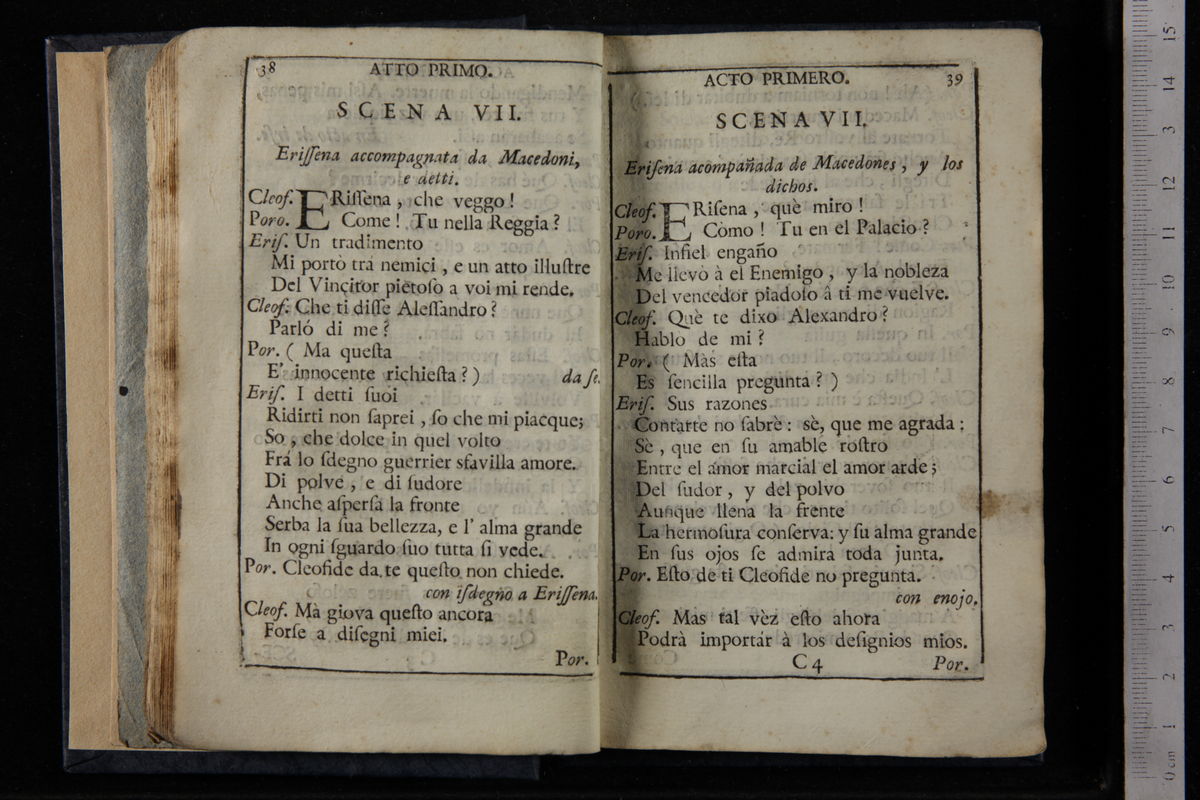 38
ATTO PRIMO.
SCENA VII.
Eriſſena accompagnata da Macedoni,
e detti.
Cleof. ERiſſena, che veggo!
Poro. Come! Tu nella Reggia?
Eriſ. Un tradimento
Mi portò trá nemici, e un atto illuſtre
Del Vincitor pietoſo a voi mi rende.
Cleof. Che ti diſſe Aleſſandro?
Parló di me?
Por. ( Ma queſta
E' innocente richieſta? ) da ſe.
Eriſ. I detti ſuoi
Ridirti non ſaprei, ſo che mi piacque;
So, che dolce in quel volto
Frá lo ſdegno guerrier sfavilla amore.
Di polve, e di ſudore
Anche aſperſa la fronte
Serba la ſua bellezza, e l' alma grande
In ogni ſguardo ſuo tutta ſi vede.
Por. Cleofide da te queſto non chiede.
con iſdegno a Eriſſena.
Cleof. Mà giova queſto ancora
Forſe a diſegni miei.
Por.
ACTO PRIMERO.
39
SCENA VII.
Eriſena acompañada de Macedones, y los
dichos.
Cleof. ERiſena, què miro!
Poro. Còmo! Tu en el Palacio?
Eriſ. Infiel engaño
Me llevò à el Enemigo, y la nobleza
Del vencedor piadoſo à ti me vuelve.
Cleof. Què te dixo Alexandro?
Hablò de mi?
Por. ( Màs eſta
Es ſencilla pregunta? )
Eriſ. Sus razones
Contarte no ſabrè: sè, que me agrada;
Sè, que en ſu amable roſtro
Entre el àmor marcial el amor arde;
Del ſudor, y del polvo
Aunque llena la frente
La hermoſura conſerva: y ſu alma grande
En ſus ojos ſe admira toda junta.
Por. Eſto de ti Cleofide no pregunta.
con enojo.
Cleof. Mas tal vèz eſto ahora
Podrà importar à los deſignios mios.
C 4
Por.